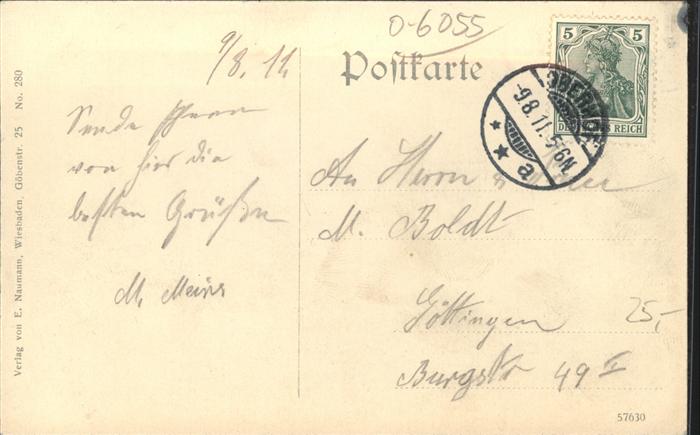 0-6055
9/8. 11.
Postkarte
5 5
DEUTSCHES REICH
OBERHOF
-9.8.11.5-6N
* * a
Sende Ihnen
von hier die
besten Grüße
M.
An Herrn
M. Boldt
Göttingen
Burgstr 49 I
25,-
Verlag von E. Naumann, Wiesbaden, Göbenstr. 25 No. 280
57630